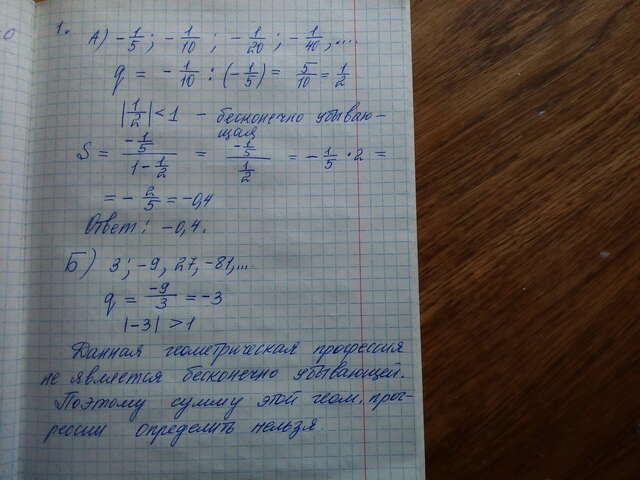 1. А) -1/5; -1/10; -1/20; -1/40, ....
q = -1/10 : (-1/5) = 5/10 = 1/2
|1/2| < 1 - бесконечно убываю-
щая
S = (-1/5)/(1 - 1/2) = (-1/5)/(1/2) = -1/5 · 2 =
= -2/5 = -0,4
Ответ: -0,4.
Б) 3; -9, 27, -81,...
q = -9/3 = -3
|-3| > 1
Данная геометрическая прогрессия
не является бесконечно убывающей.
Поэтому сумму этой геом. прог-
рессии определить нельзя.